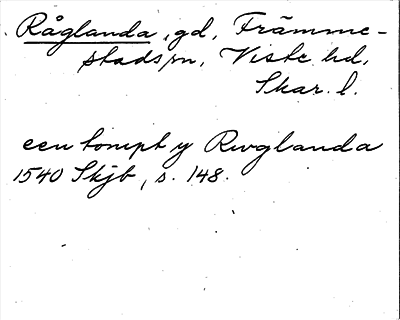 Råglanda, gd, Främme-
stads sn, Viste hd,
Skar. l.
een tompt y Rwglanda
1540 Skjb, s. 148.